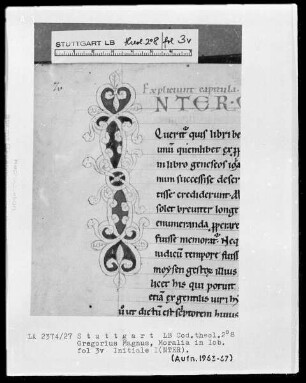 STUTTGART LB theol. 2° 8 fol 3v
Expliciunt capitula.
NTER·
Querit̄ quis libri be
unū quemlibet ex p̄
in libro geneseos
num successisse descr
tisse crediderunt.
solet breuiter long
enumeranda, p̄erare
fuisse memorat. Neq
iudicum tempore fuiss
moysen gestis illius
licet his qui poterit
etia ex gentilis uiri hi
ū dictū est septorem huius
LA 2374/27 Stuttgart LB Cod.theol.2°8
Gregorius Magnus, Moralia in Iob.
fol 3v Initiale I(NTER).
(Aufn. 1963-67)